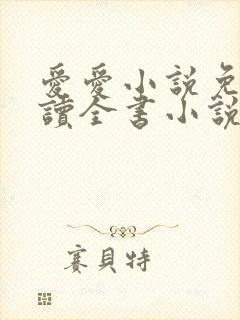 愛愛小說免
讀全書小說
賽貝特